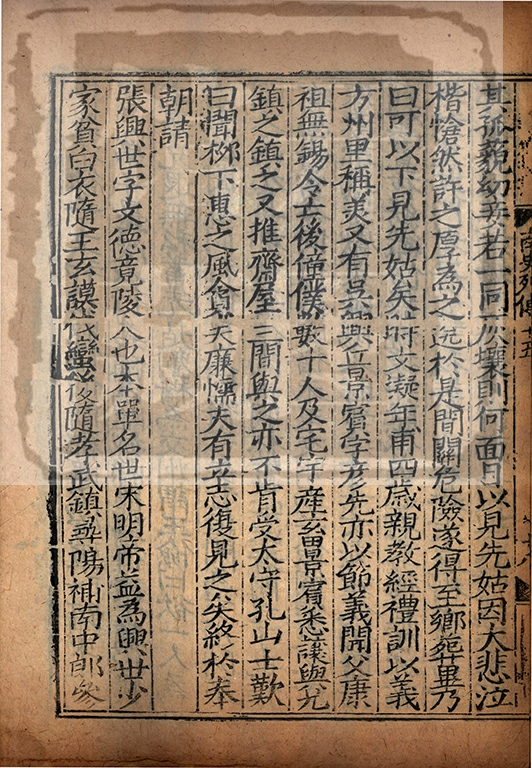 其孤藐幼妾若一同灰壤則何面目以見先姑因大悲泣
楷愴然許之厚為之送於是間關危險遂得至鄉葬畢乃
曰可以下見先姑矣時文凝年甫四歲親教經禮訓以義
方州里稱美又有吳興丘景賓字彥先亦以節義聞父康
祖無錫令亡後僮僕數十人及宅宇產畜景賓悉讓與兄
鎮之鎮之又推齋屋三間與之亦不肯受太守孔山士歎
曰聞柳下惠之風貪夫廉懦夫有立志復見之矣終於奉
朝請
張興世字文德竟陵人也本單名世宋明帝益為興世少
家貧白衣隨王玄謨伐蠻後隨孝武鎮尋陽補南中郎參